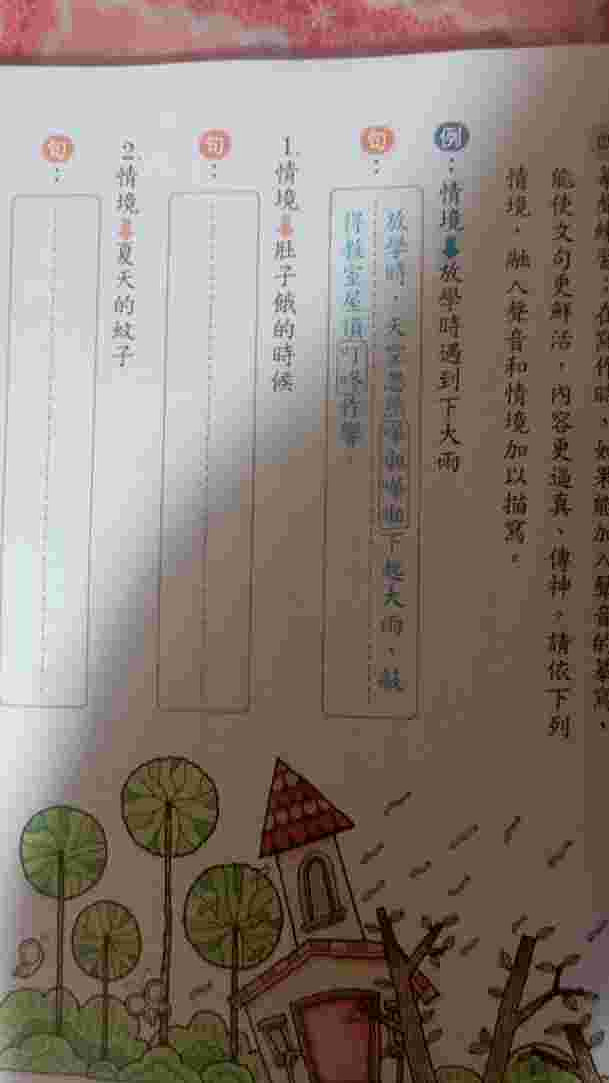 摹寫練習：在寫作時，如果能加入聲音的摹寫，
能使文句更鮮活，內容更逼真、傳神。請依下列
情境，融入聲音和情境加以描寫。
例：情境➡放學時遇到下大雨
句：放學時，天空忽然嘩啦嘩啦下起大雨，敲
得教室屋頂叮咚作響。
1.情境➡肚子餓的時候
句：
2.情境➡夏天的蚊子
句：